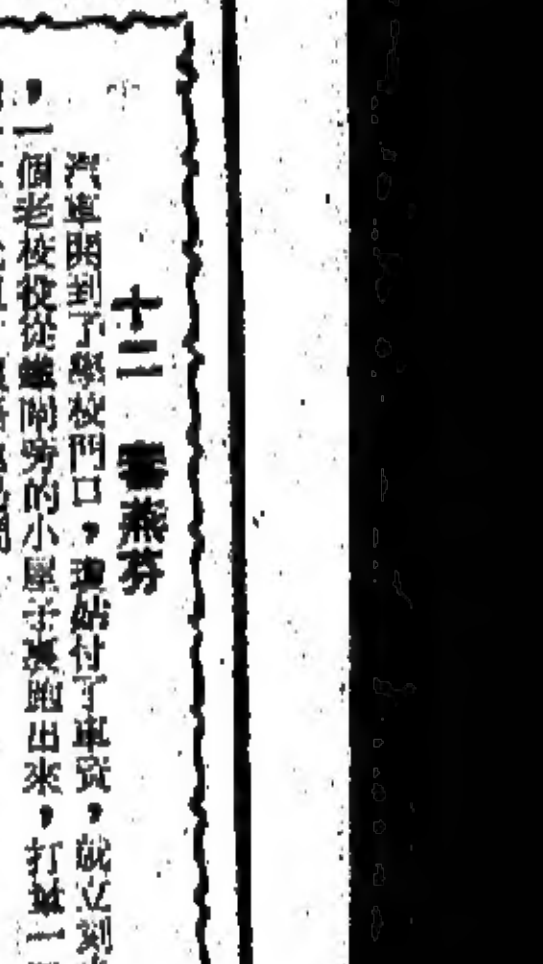 十二 燕芬
汽車開到了學校門口，付了車資，就立刻
，一個老校役從鐵閘旁的小屋子裏跑出來，打量一